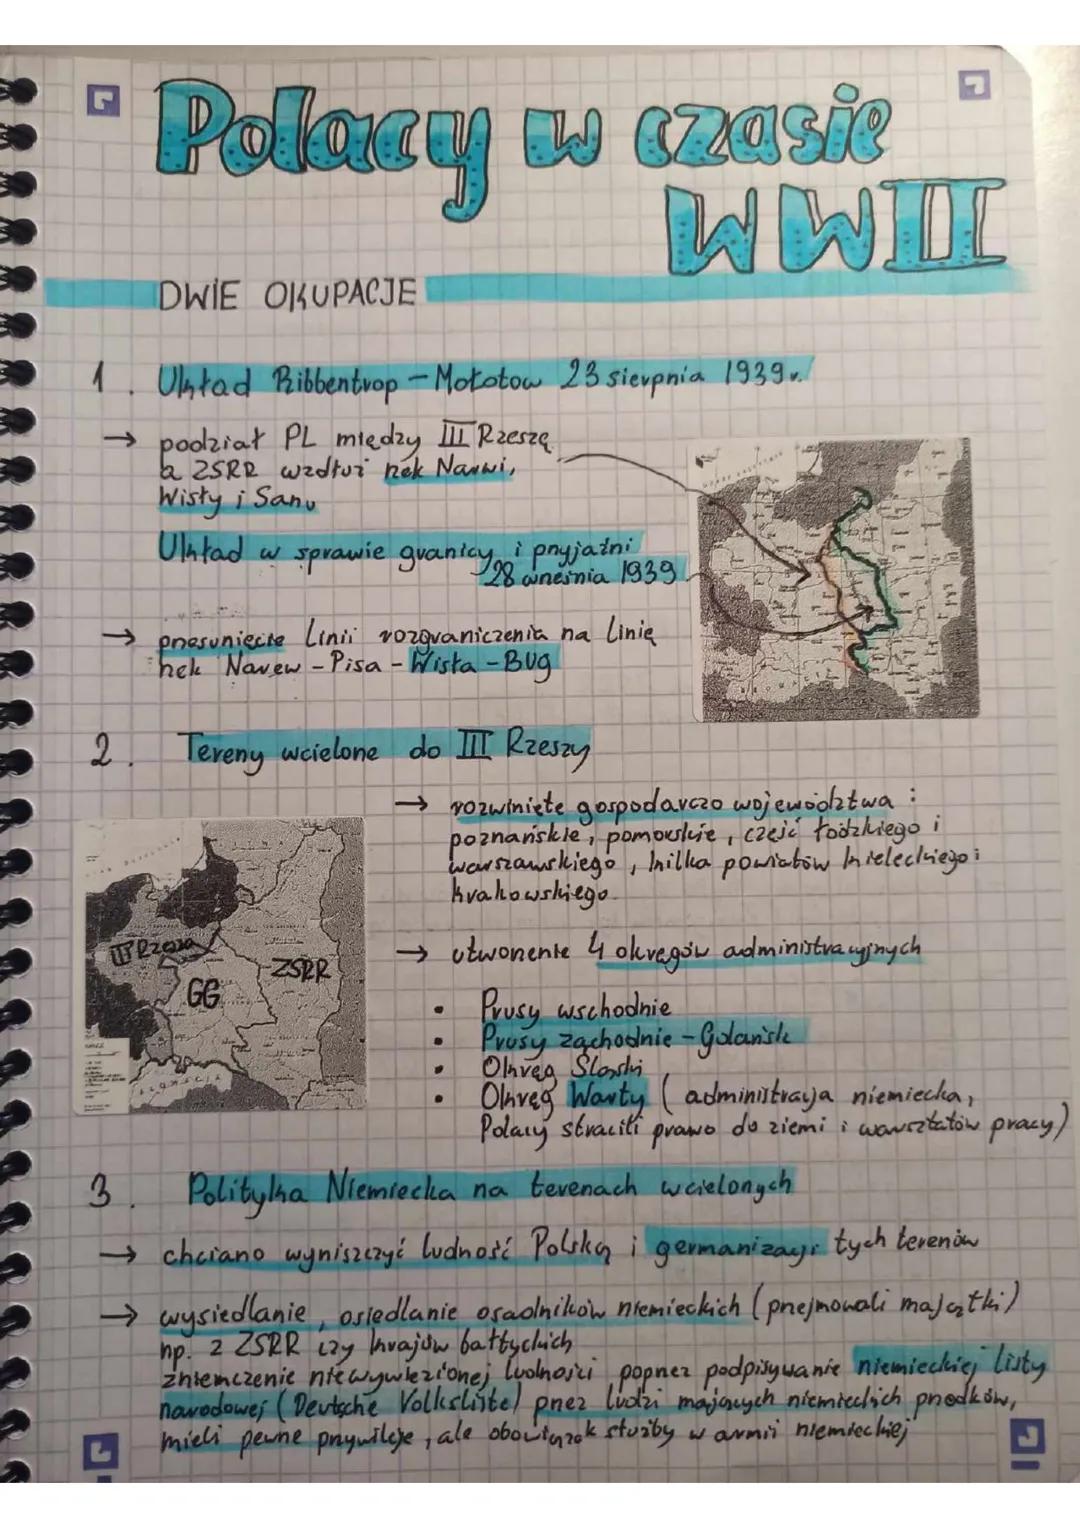 Polacy w czasie
WWII
DWIE OKUPACJE
1. Układ Ribbentrop - Mołotow 23 sierpnia 1939r.
→ podział PL między III Rzeszą
a ZSRR wzdłuż rzek Narwi,
Wisły i Sanu
Układ w sprawie granicy i przyjaźni
28 września 1939
→ przesunięcie linii rozgraniczenia na linię
rzek Narew - Pisa - Wisła - Bug
2. Tereny wcielone do III Rzeszy
→ rozwinięte gospodarczo województwa:
poznańskie, pomorskie, część łódzkiego i
warszawskiego, kilka powiatów kieleckiego i
krakowskiego.
III Rzesza
GG
ZSRR
→ utworzenie 4 okręgów administracyjnych
• Prusy wschodnie
• Prusy zachodnie - Gdańsk
• Okręg Śląski
• Okręg Warty (administracja niemiecka,
Polacy stracili prawo do ziemi i warsztatów pracy)
3. Polityka Niemiecka na terenach wcielonych
→ chciano wyniszczyć ludność Polską i germanizacji tych terenów
→ wysiedlanie, osiedlanie osadników niemieckich (przejmowali majątki)
np. z ZSRR czy krajów bałtyckich
zniemczenie niewywiezionej ludności poprzez podpisywanie niemieckiej listy
narodowej (Deutsche Volksliste) przez ludzi mających niemieckich przodków,
mieli pewne przywileje, ale obowiązek służby w armii niemieckiej